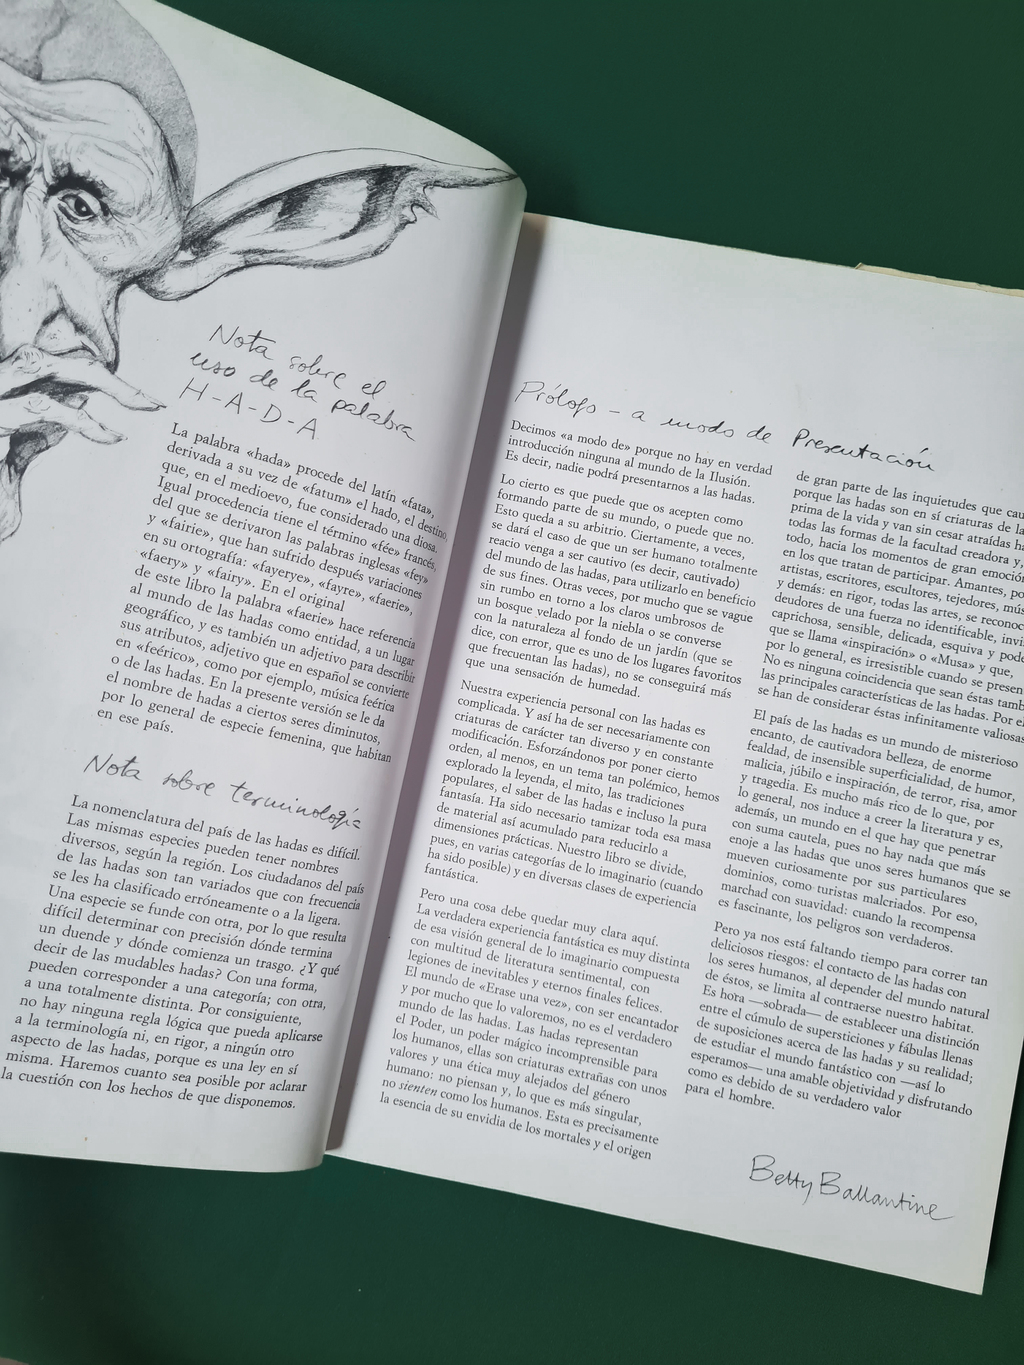 Nota sobre el
uso de la palabra
H-A-D-A
La palabra «hada» procede del latín «fata»,
derivada a su vez de «fatum» el hado, el destino,
que, en el medioevo, fue considerado una diosa.
Igual procedencia tiene el término «fée» francés,
del que se derivaron las palabras inglesas «fey»
y «fairie», que han sufrido después variaciones
en su ortografía: «fayerye», «fayre», «faerie»,
«faery» y «fairy». En el original
de este libro la palabra «faerie» hace referencia
al mundo de las hadas como entidad, a un lugar
geográfico, y es también un adjetivo para describir
sus atributos, adjetivo que en español se convierte
en «feérico», como por ejemplo, música feérica
o de las hadas. En la presente versión se le da
el nombre de hadas a ciertos seres diminutos,
por lo general de especie femenina, que habitan
en ese país.
Nota sobre terminología
La nomenclatura del país de las hadas es difícil.
Las mismas especies pueden tener nombres
diversos, según la región. Los ciudadanos del país
de las hadas son tan variados que con frecuencia
se les ha clasificado erróneamente o a la ligera.
Una especie se funde con otra, por lo que resulta
difícil determinar con precisión dónde termina
un duende y dónde comienza un trasgo. ¿Y qué
decir de las mudables hadas? Con una forma,
pueden corresponder a una categoría; con otra,
a una totalmente distinta. Por consiguiente,
no hay ninguna regla lógica que pueda aplicarse
a la terminología ni, en rigor, a ningún otro
aspecto de las hadas, porque es una ley en sí
misma. Haremos cuanto sea posible por aclarar
la cuestión con los hechos de que disponemos.
Prólogo - a modo de Presentación
Decimos «a modo de» porque no hay en verdad
introducción ninguna al mundo de la Ilusión.
Es decir, nadie podrá presentarnos a las hadas.
Lo cierto es que puede que os acepten como
formando parte de su mundo, o puede que no.
Esto queda a su arbitrio. Ciertamente, a veces,
se dará el caso de que un ser humano totalmente
reacio venga a ser cautivo (es decir, cautivado)
del mundo de las hadas, para utilizarlo en beneficio
de sus fines. Otras veces, por mucho que se vague
sin rumbo en torno a los claros umbrosos de
un bosque velado por la niebla o se converse
con la naturaleza al fondo de un jardín (que se
dice, con error, que es uno de los lugares favoritos
que frecuentan las hadas), no se conseguirá más
que una sensación de humedad.
Nuestra experiencia personal con las hadas es
complicada. Y así ha de ser necesariamente con
criaturas de carácter tan diverso y en constante
modificación. Esforzándonos por poner cierto
orden, al menos, en un tema tan polémico, hemos
explorado la leyenda, el mito, las tradiciones
populares, el saber de las hadas e incluso la pura
fantasía. Ha sido necesario tamizar toda esa masa
de material así acumulado para reducirlo a
dimensiones prácticas. Nuestro libro se divide,
pues, en varias categorías de lo imaginario (cuando
ha sido posible) y en diversas clases de experiencia
fantástica.
Pero una cosa debe quedar muy clara aquí.
La verdadera experiencia fantástica es muy distinta
de esa visión general de lo imaginario compuesta
con multitud de literatura sentimental, con
legiones de inevitables y eternos finales felices.
El mundo de «Erase una vez», con ser encantador
y por mucho que lo valoremos, no es el verdadero
mundo de las hadas. Las hadas representan
el Poder, un poder mágico incomprensible para
los humanos, ellas son criaturas extrañas con unos
valores y una ética muy alejados del género
humano: no piensan y, lo que es más singular,
no sienten como los humanos. Esta es precisamente
la esencia de su envidia de los mortales y el origen
de gran parte de las inquietudes que cau
porque las hadas son en sí criaturas de la
prima de la vida y van sin cesar atraídas ha
todas las formas de la facultad creadora y,
todo, hacia los momentos de gran emoció
en los que tratan de participar. Amantes, po
artistas, escritores, escultores, tejedores, mús
y demás: en rigor, todas las artes, se reconoc
deudores de una fuerza no identificable, invi
caprichosa, sensible, delicada, esquiva y pode
que se llama «inspiración» o «Musa» y que,
por lo general, es irresistible cuando se presen
No es ninguna coincidencia que sean éstas tamb
las principales características de las hadas. Por el
se han de considerar éstas infinitamente valiosas
El país de las hadas es un mundo de misterioso
encanto, de cautivadora belleza, de enorme
fealdad, de insensible superficialidad, de humor,
malicia, júbilo e inspiración, de terror, risa, amor
y tragedia. Es mucho más rico de lo que, por
lo general, nos induce a creer la literatura y es,
además, un mundo en el que hay que penetrar
con suma cautela, pues no hay nada que más
enoje a las hadas que unos seres humanos que se
mueven curiosamente por sus particulares
dominios, como turistas malcriados. Por eso,
marchad con suavidad: cuando la recompensa
es fascinante, los peligros son verdaderos.
Pero ya nos está faltando tiempo para correr tan
deliciosos riesgos: el contacto de las hadas con
los seres humanos, al depender del mundo natural
de éstos, se limita al contraerse nuestro habitat.
Es hora —sobrada— de establecer una distinción
entre el cúmulo de supersticiones y fábulas llenas
de suposiciones acerca de las hadas y su realidad;
de estudiar el mundo fantástico con —así lo
esperamos— una amable objetividad y disfrutando
como es debido de su verdadero valor
para el hombre.
Betty Ballantine